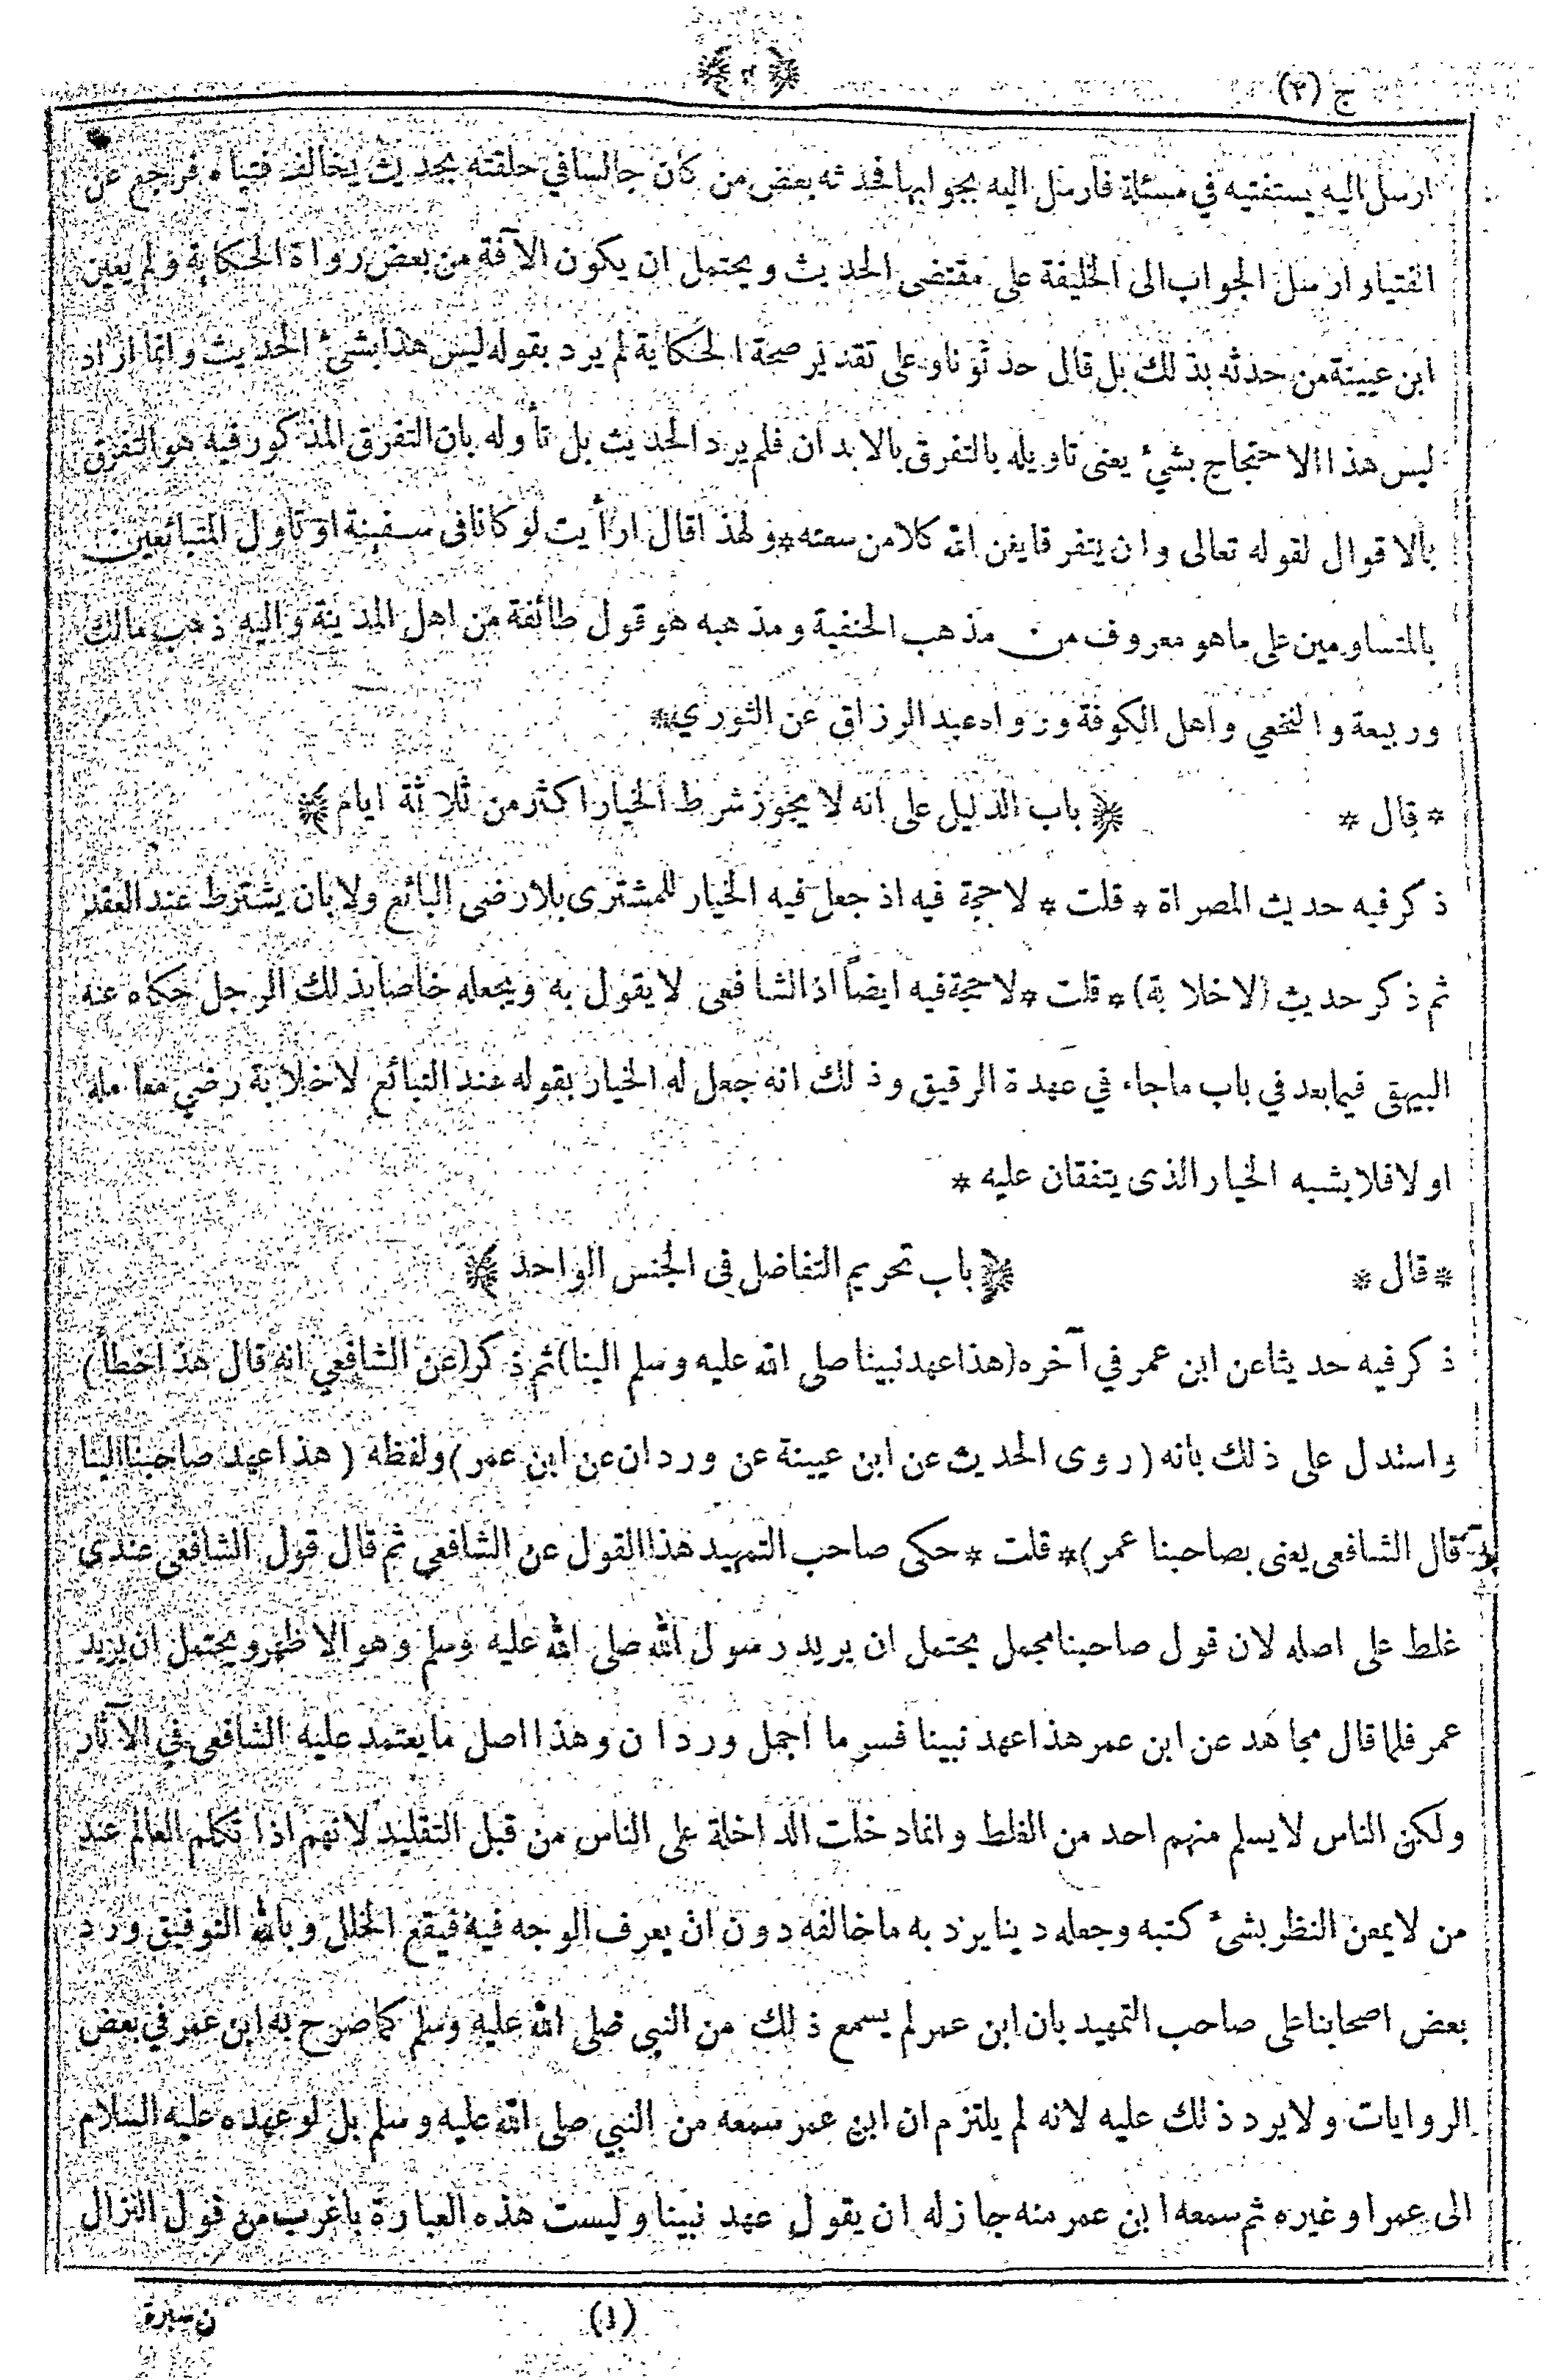 ج (٢)
﴿ ٢ ﴾
ارسل اليه يستفتيه في مسئلة فارسل اليه بجوابها فحدثه بعض من كان جالسا في حلقته بحديث يخالف فتياه فرجع عن
الفتيا وارسل الجواب الى الخليفة على مقتضى الحديث ويحتمل ان يكون الآفة من بعض رواة الحكاية ولم يعين
ابن عيينة من حدثه بذلك بل قال حدثونا وعلى تقدير صحة الحكاية لم يرد بقوله ليس هذا بشئ الحديث وانما اراد
ليس هذا الاحتجاج بشيء يعنى تاويله بالتفرق بالابدان فلم يرد الحديث بل تأوله بان التفرق المذكور فيه هو التفرق
بالاقوال لقوله تعالى وان يتفرقا يغن الله كلا من سعته * ولهذا قال ارأيت لو كانا فى سفينة او تاول المتبائعين
بالمتساومين على ما هو معروف من مذهب الحنفية ومذهبه هو قول طائفة من اهل المدينة واليه ذهب مالك
وربيعة والنخعي واهل الكوفة ورواه عبد الرزاق عن الثوري *
* قال * ﴿ باب الدليل على انه لا يجوز شرط الخيار اكثر من ثلاثة ايام ﴾
ذكر فيه حديث المصراة * قلت * لا حجة فيه اذ جعل فيه الخيار للمشترى بلا رضى البائع ولا بان يشترط عند العقد
ثم ذكر حديث (لا خلابة) * قلت * لا حجة فيه ايضاً اذ الشافعى لا يقول به ويجعله خاصا بذلك الرجل حكاه عنه
البيهقى فيما بعد في باب ما جاء في عهدة الرقيق وذلك انه جعل له الخيار بقوله عند التبائع لا خلابة رضي معامله
او لا فلا يشبه الخيار الذى يتفقان عليه *
* قال * ﴿ باب تحريم التفاضل فى الجنس الواحد ﴾
ذكر فيه حديثا عن ابن عمر في آخره (هذا عهد نبينا صلى الله عليه وسلم الينا) ثم ذكر (عن الشافعي انه قال هذا خطأ)
واستدل على ذلك بانه (روى الحديث عن ابن عيينة عن وردان عن ابن عمر) ولفظه (هذا عهد صاحبنا الينا
قال الشافعى يعنى بصاحبنا عمر) * قلت * حكى صاحب التمهيد هذا القول عن الشافعي ثم قال قول الشافعى عندى
غلط على اصله لان قول صاحبنا مجمل يحتمل ان يريد رسول الله صلى الله عليه وسلم وهو الاظهر ويحتمل ان يريد
عمر فلما قال مجاهد عن ابن عمر هذا عهد نبينا فسر ما اجمل وردان وهذا اصل ما يعتمد عليه الشافعى في الآثار
ولكن الناس لا يسلم منهم احد من الغلط وانما دخلت الداخلة على الناس من قبل التقليد لانهم اذا تكلم العالم عند
من لا يمعن النظر بشئ كتبه وجعله دينا يرد به ما خالفه دون ان يعرف الوجه فيه فيقع الخلل وبالله التوفيق ورد
بعض اصحابنا على صاحب التمهيد بان ابن عمر لم يسمع ذلك من النبي صلى الله عليه وسلم كما صرح به ابن عمر في بعض
الروايات ولا يرد ذلك عليه لانه لم يلتزم ان ابن عمر سمعه من النبي صلى الله عليه وسلم بل لو عهده عليه السلام
الى عمر او غيره ثم سمعه ابن عمر منه جاز له ان يقول عهد نبينا وليست هذه العبارة باغرب من قول النزال
(١) ن سبرة